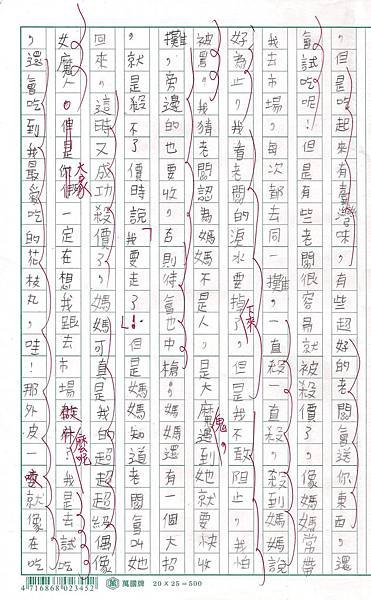 ，但是吃起來有臺灣味，有些超好的老闆會送你東西，還
會試吃呢！但是有些老闆很容易就被殺價了，像媽媽常帶
我去市場，每次都去同一攤，一直殺一直殺，殺到媽媽說
好為止，我看老闆的淚水要掉下來了，但是我不敢阻止，我怕
被罵。我猜老闆認為媽媽不是人，是大魔鬼，遇到她就要快收
攤，旁邊的也要收，否則待會也中槍；媽媽還有一個大招
，就是殺不了價時說「我要走了！」但是媽媽知道老闆會叫她
回來，這時又成功殺價了，媽媽可真是我的超超超級偶像
女魔人。但是大家一定在想我跟去市場做什麼呢？我是去試吃
，還會吃到我最愛吃的花枝丸，哇！那外皮一咬就像在吃
4716868023452 萬國牌 20X25=500